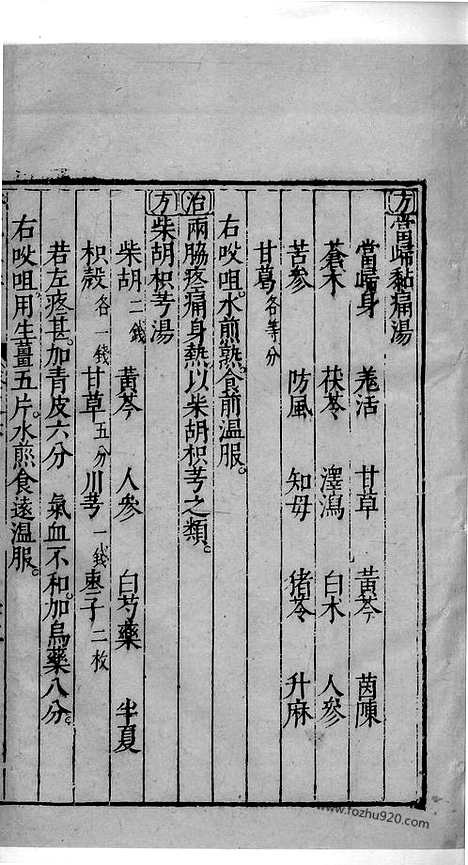 方當歸黏痛湯
當歸身 羗活 甘草 黃芩 茵陳
蒼术 茯苓 澤瀉 白术 人參
苦參 防風 知母 猪苓 升麻
甘葛各等分
右㕮咀水煎熟。食前温服。
治兩脇疼痛身熱以柴胡枳芎之類。
方柴胡枳芎湯
柴胡二錢 黃芩 人參 白芍藥 半夏
枳殼各一錢 甘草五分 川芎一錢 棗子二枚
若左疼甚。加青皮六分 氣血不和。加烏藥八分。
右㕮咀用生薑五片。水煎食遠温服。
www.fozhu920.com